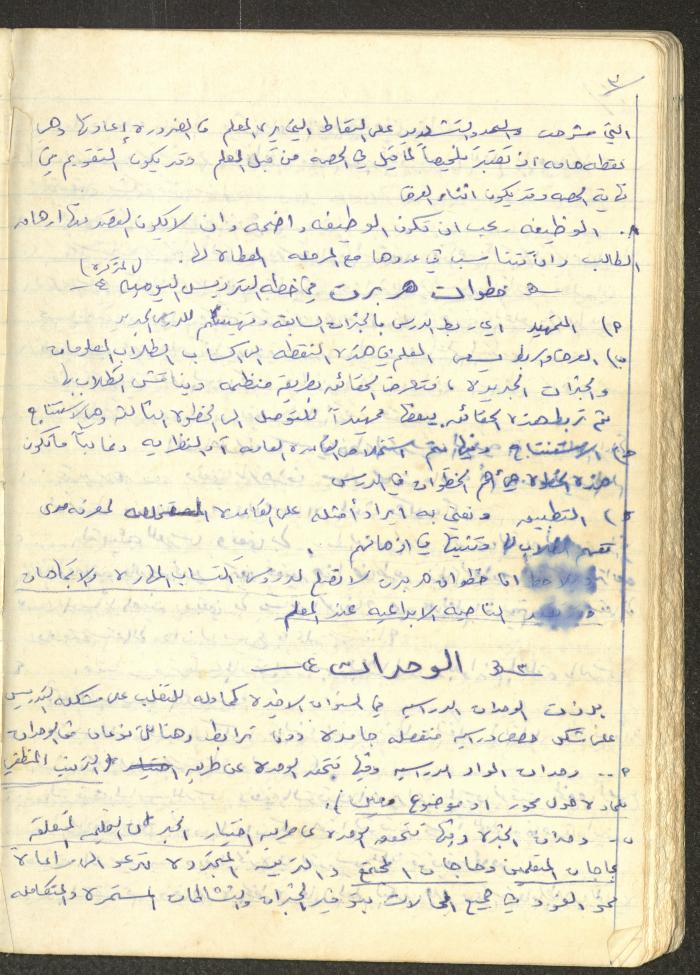 ٣
التي شرحت والتشديد على النقاط التي يرى المعلم فالضرورة إعادتها وهي
نقطة هامة اذ تعتبر تلخيصاً لما قيل في الحصة من قبل المعلم وقد يكون التقويم في
نهاية الحصة وقد يكون اثناء العرض
٨. الوظيفة يجب ان تكون الوظيفة واضحة وان لا يكون القصد منها ارهاق
الطالب وان تتناسب في عددها مع المرحلة المعطاة لها.
خطوات هربرت في خطة التدريس اليومية (المذكرة)
٢) التمهيد اي ربط الدرس بالخبرات السابقة وتهيئتهم للدرس الجديد
ب) العرض والربط يسعى المعلم في هذه النقطة الى اكساب الطلاب المعلومات
والخبرات الجديدة، فتعرض الحقائق بطريقة منظمة ويناقش الطلاب بها
ثم تربط هذه الحقائق ببعضها تمهيداً للتوصل الى الخطوة التالية وهي الاستنتاج
ح) الاستنتاج وفيها يتم استخلاص القاعدة العامة او النظرية وغالباً ما تكون
هذه الخطوة هي أهم الخطوات في الدرس
د) التطبيق ونعني به ايراد أمثلة على القاعدة لمعرفة مدى
تفهم الطلاب لها وتثبيتها في اذهانهم.
ان خطوات هربرت لا تصلح لدروس اكتساب المهارة والاتجاهات
الناحية الابداعية عند المعلم
٣- الوحدات
برزت الوحدات الدراسية في السنوات الاخيرة كمحاولة للتغلب على مشكلة التدريس
على شكل حصص دراسية منفصلة جامدة دون ترابط وهناك نوعان من الوحدات
٢.. وحدات المواد الدراسية وفيها تتحقق الوحدة عن طريق (الترتيب المنطقي
للمادة حول محور او موضوع معين).
ب- وحدات الخبرة وفيها تتحقق الوحدة عن طريق اختيار الخبرات التعليمية المتعلقة
بحاجات المتعلمين وحاجات المجتمع والتربية المتجددة تدعو الى مراعاة
نمو الفرد في جميع المجالات بتوفير الخبرات والنشاطات المستمرة والمتكاملة